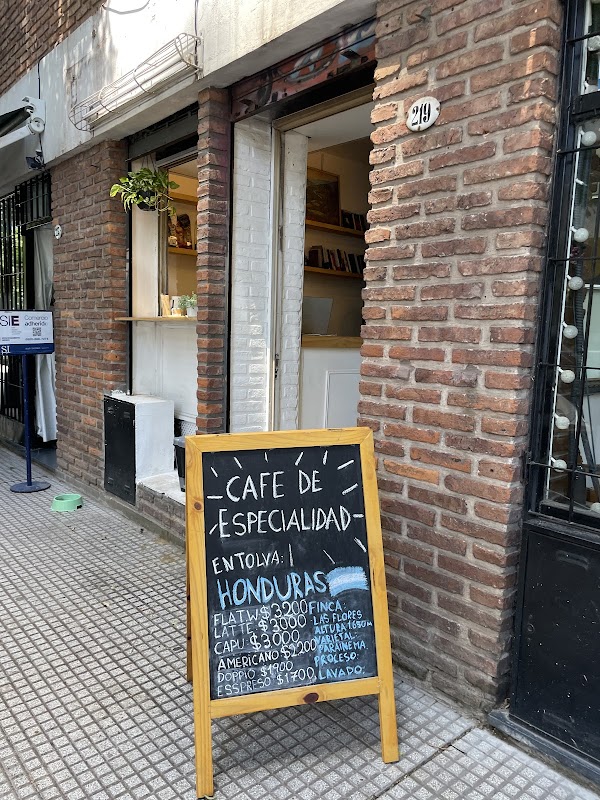 219
SIE Comercio
adherido
SI
CAFE DE
ESPECIALIDAD
EN TOLVA:
HONDURAS
FLAT.W $3200
LATTE $3000
CAPU $3000
AMERICANO $2200
DOPPIO $1900
ESSPRESO $1700
FINCA:
LAS FLORES
ALTURA 1.650m
VARIETAL:
PARAINEMA.
PROCESO:
LAVADO.